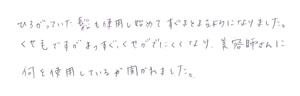 ひろがっていた髪も使用し始めてすぐまとまるようになりました。
くせ毛ですがまっすぐ、くせがでにくくなり、美容師さんに
何を使用しているか聞かれました。